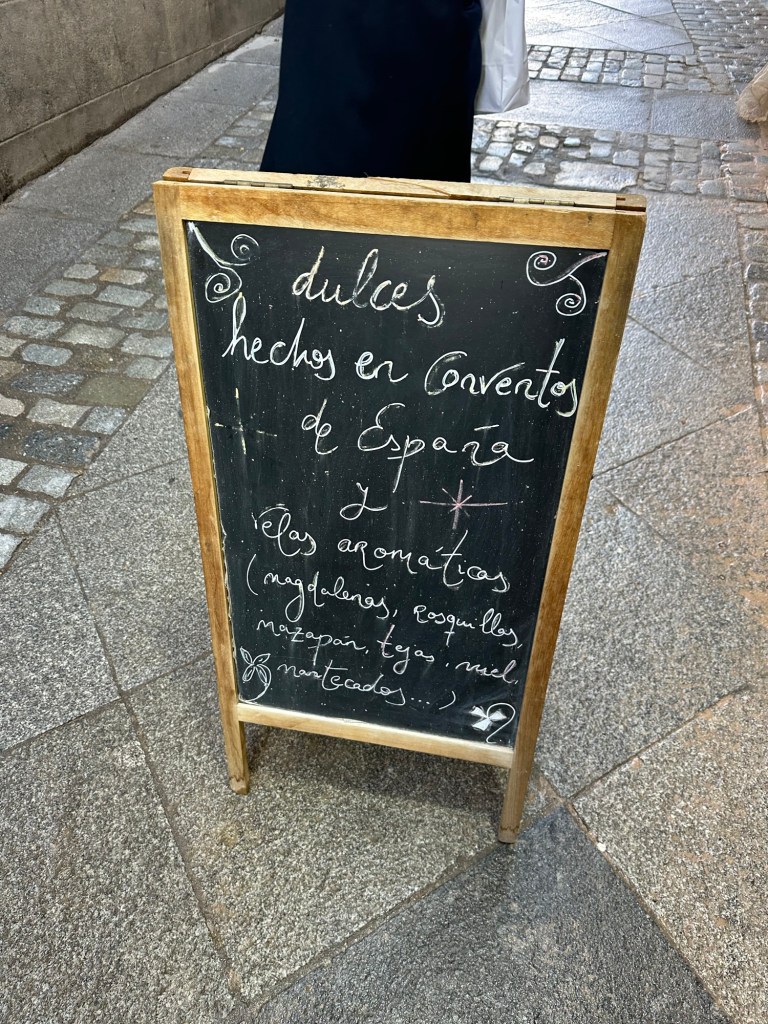 dulces
hechos en Conventos
de España
y
velas aromáticas
(magdalenas, rosquillas,
mazapán, tejas, miel,
mantecados...)